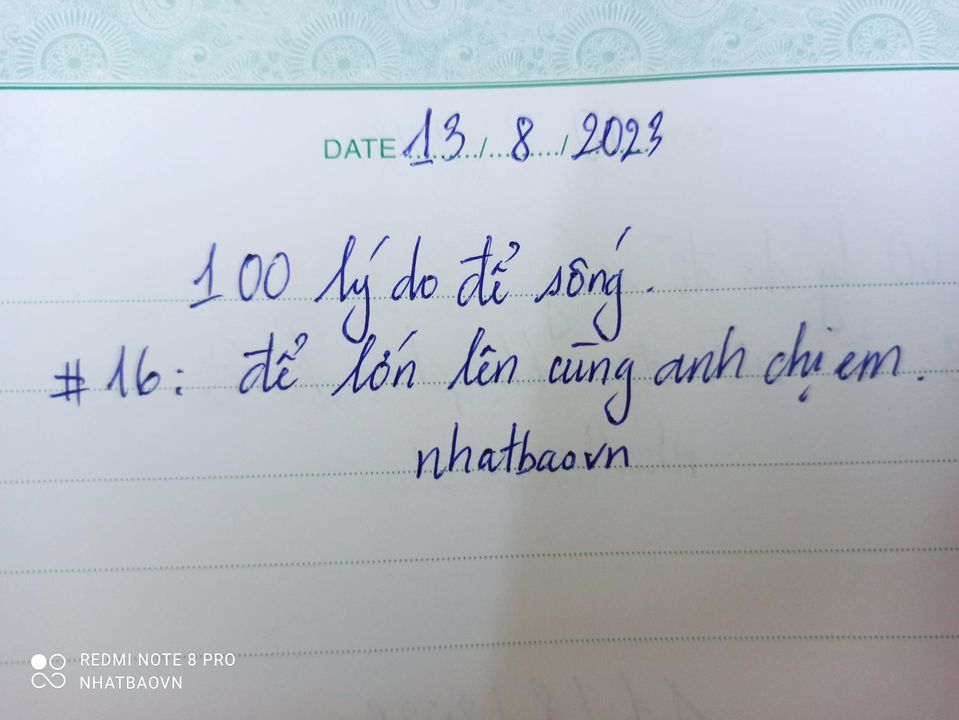 DATE 13/8/2023
100 lý do để sống.
#16: để lớn lên cùng anh chị em.
nhatbaovn
REDMI NOTE 8 PRO
NHATBAOVN